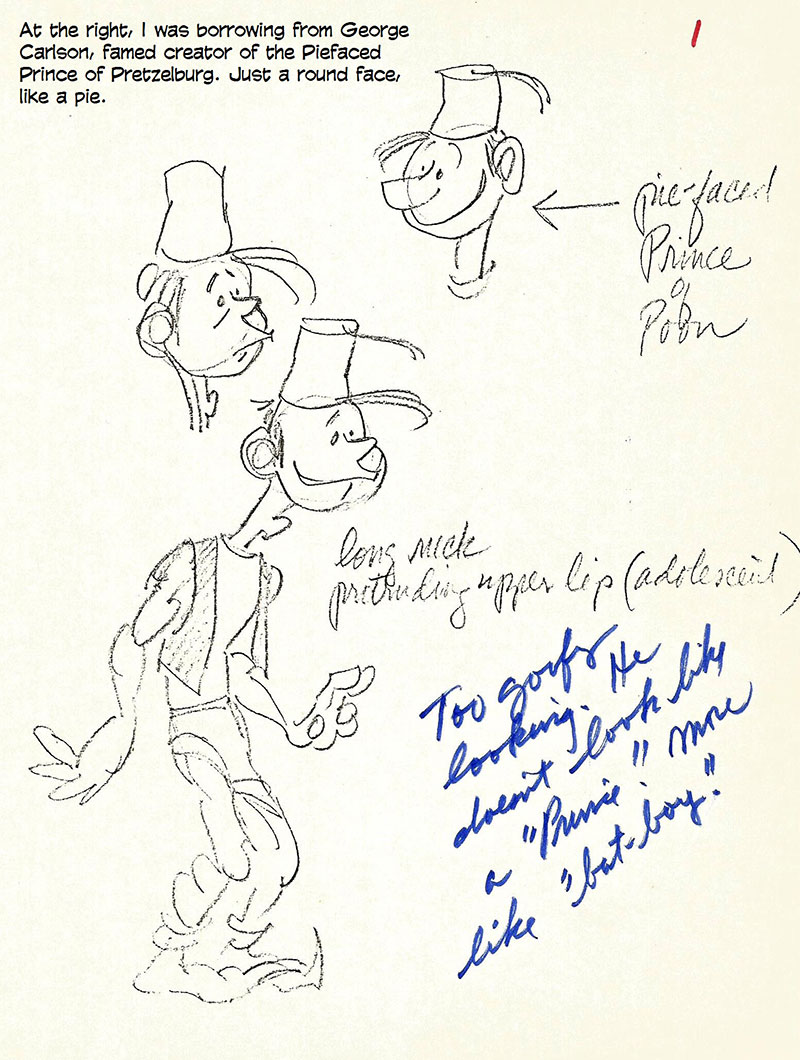 At the right, I was borrowing from George
Carlson, famed creator of the Piefaced
Prince of Pretzelburg. Just a round face,
like a pie.
1
pie-faced
Prince
of
Poon
long neck
protruding upper lip (adolescent)
Too goofy
looking. He
doesn't look like
a "Prince". More
like "bat-boy".